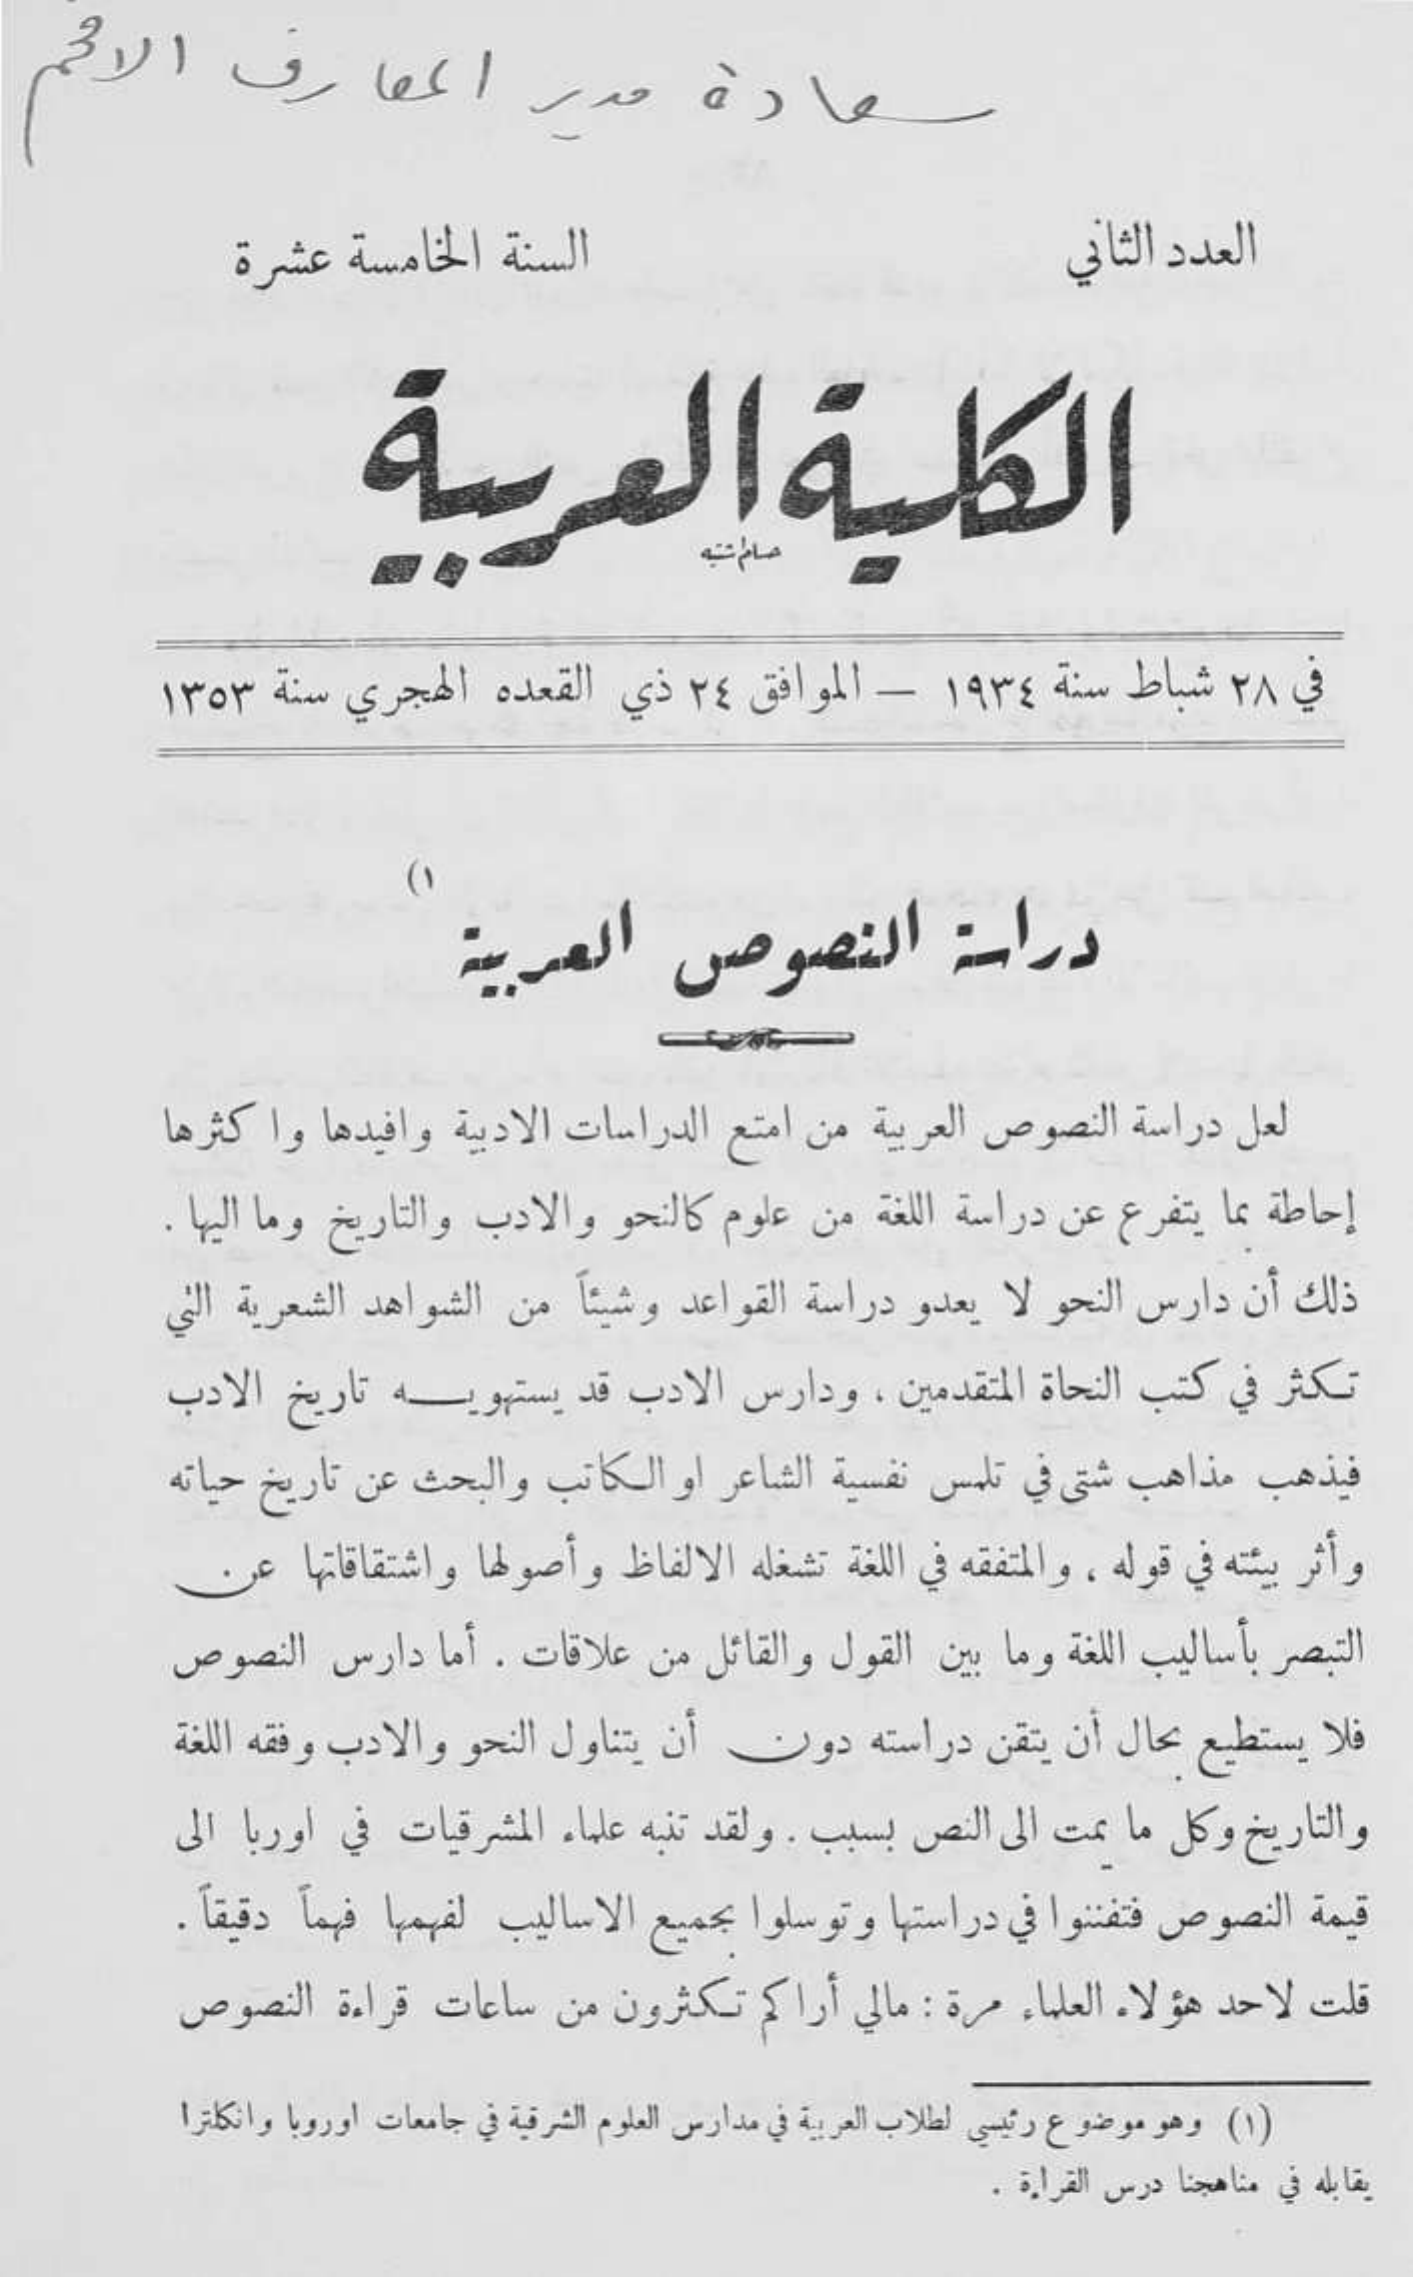 سعادة مدير المعارف الافخم
العدد الثاني
السنة الخامسة عشرة
الكلية العربية
في ٢٨ شباط سنة ١٩٣٤ — الموافق ٢٤ ذي القعده الهجري سنة ١٣٥٣
دراسة النصوص العربية ١)
لعل دراسة النصوص العربية من امتع الدراسات الادبية وافيدها واكثرها
إحاطة بما يتفرع عن دراسة اللغة من علوم كالنحو والادب والتاريخ وما اليها .
ذلك أن دارس النحو لا يعدو دراسة القواعد وشيئاً من الشواهد الشعرية التي
تكثر في كتب النحاة المتقدمين ، ودارس الادب قد يستهويه تاريخ الادب
فيذهب مذاهب شتى في تلمس نفسية الشاعر او الكاتب والبحث عن تاريخ حياته
وأثر بيئته في قوله ، والمتفقه في اللغة تشغله الالفاظ وأصولها واشتقاقاتها عن
التبصر بأساليب اللغة وما بين القول والقائل من علاقات . أما دارس النصوص
فلا يستطيع بحال أن يتقن دراسته دون أن يتناول النحو والادب وفقه اللغة
والتاريخ وكل ما يمت الى النص بسبب . ولقد تنبه علماء المشرقيات في اوربا الى
قيمة النصوص فتفننوا في دراستها وتوسلوا بجميع الاساليب لفهمها فهماً دقيقاً .
قلت لاحد هؤلاء العلماء مرة : مالي أراكم تكثرون من ساعات قراءة النصوص
(١) وهو موضوع رئيسي لطلاب العربية في مدارس العلوم الشرقية في جامعات اوروبا وانكلترا
يقابله في مناهجنا درس القراءة .